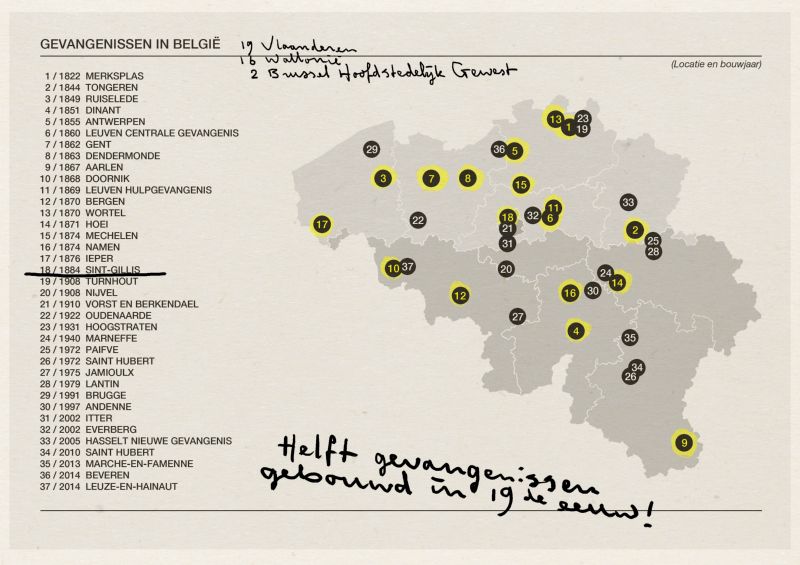 GEVANGENISSEN IN BELGIË
19 Vlaanderen
16 Wallonië
2 Brussel Hoofdstedelijk Gewest
(Locatie en bouwjaar)
1 / 1822 MERKSPLAS
2 / 1844 TONGEREN
3 / 1849 RUISELEDE
4 / 1851 DINANT
5 / 1855 ANTWERPEN
6 / 1860 LEUVEN CENTRALE GEVANGENIS
7 / 1862 GENT
8 / 1863 DENDERMONDE
9 / 1867 AARLEN
10 / 1868 DOORNIK
11 / 1869 LEUVEN HULPGEVANGENIS
12 / 1870 BERGEN
13 / 1870 WORTEL
14 / 1871 HOEI
15 / 1874 MECHELEN
16 / 1874 NAMEN
17 / 1876 IEPER
18 / 1884 SINT-GILLIS
19 / 1908 TURNHOUT
20 / 1908 NIJVEL
21 / 1910 VORST EN BERKENDAEL
22 / 1922 OUDENAARDE
23 / 1931 HOOGSTRATEN
24 / 1940 MARNEFFE
25 / 1972 PAIFVE
26 / 1972 SAINT HUBERT
27 / 1975 JAMIOULX
28 / 1979 LANTIN
29 / 1991 BRUGGE
30 / 1997 ANDENNE
31 / 2002 ITTER
32 / 2002 EVERBERG
33 / 2005 HASSELT NIEUWE GEVANGENIS
34 / 2010 SAINT HUBERT
35 / 2013 MARCHE-EN-FAMENNE
36 / 2014 BEVEREN
37 / 2014 LEUZE-EN-HAINAUT
13 23
1 19
29
36 5
3 7 8
15
33
11
18 32 6
22
17
21
2
25
31
28
10 37
20
24
14
12
16 30
27
4
35
34
26
9
Helft gevangenissen
gebouwd in 19de eeuw!